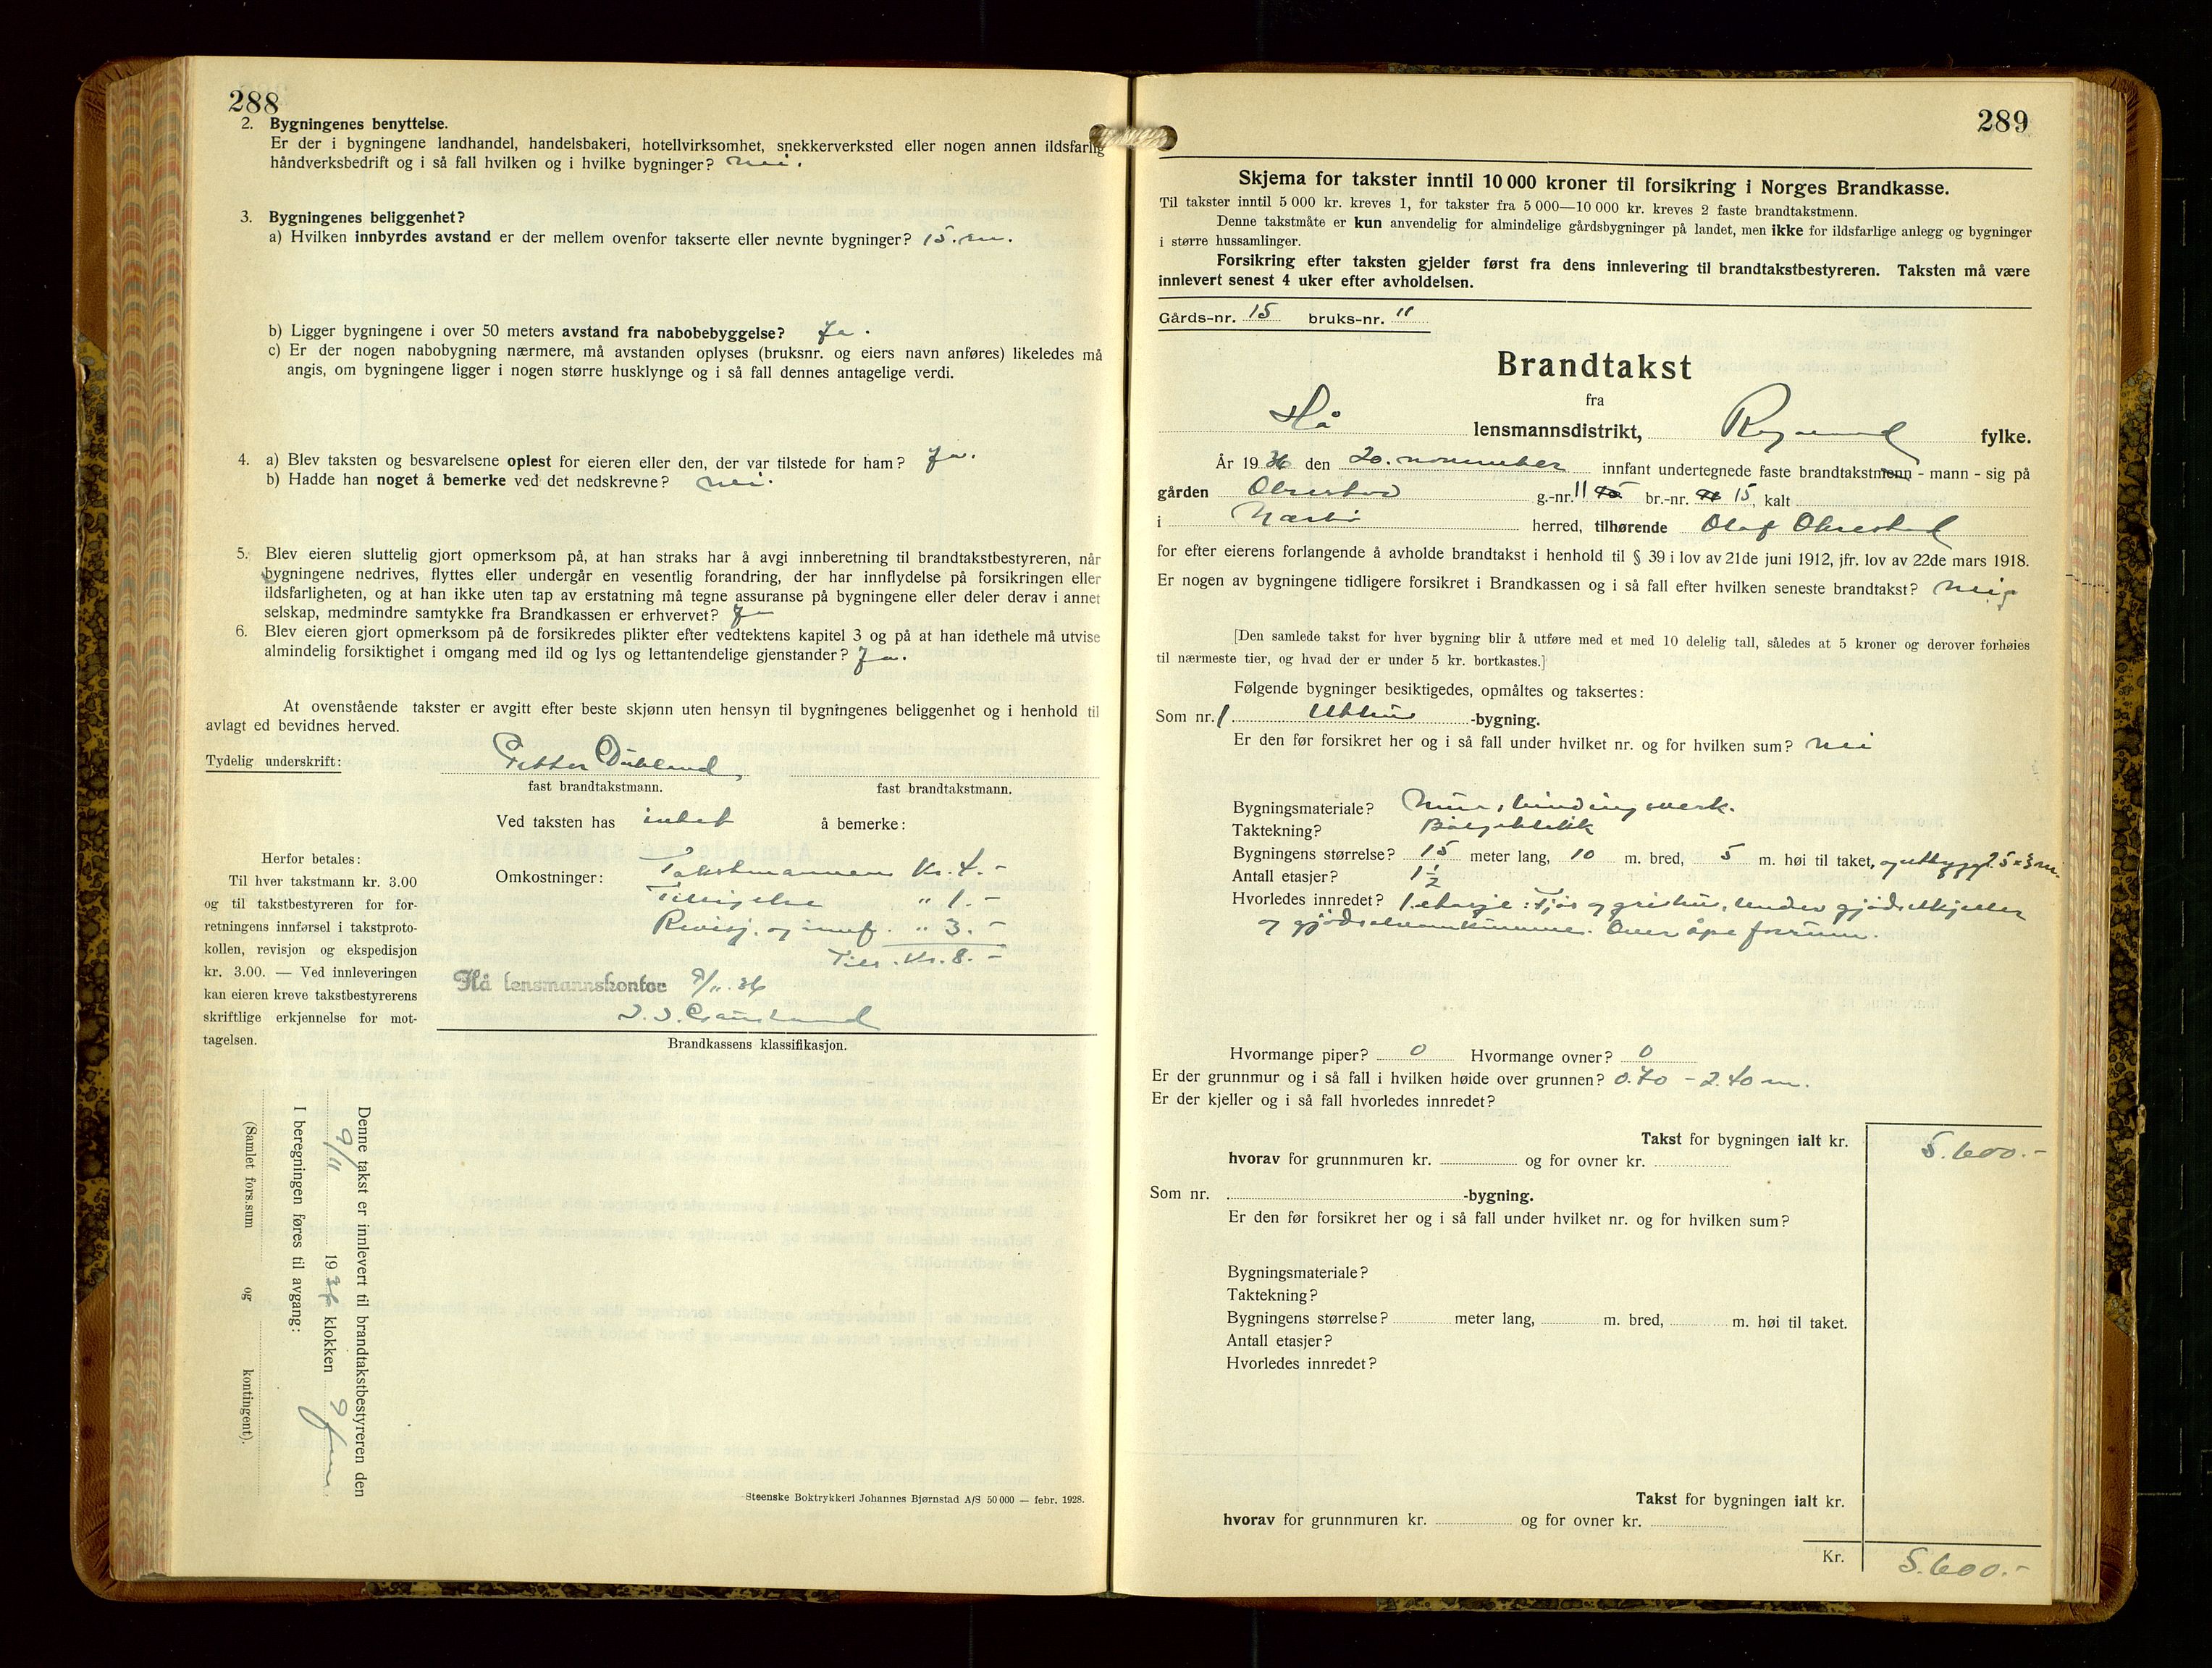 288
2. Bygningenes benyttelse.
Er der i bygningene landhandel, handelsbakeri, hotellvirksomhet, snekkerverksted eller nogen annen ildsfarlig
håndverksbedrift og i så fall hvilken og i hvilke bygninger? nei.
3. Bygningenes beliggenhet?
a) Hvilken innbyrdes avstand er der mellem ovenfor takserte eller nevnte bygninger? 15. m.
b) Ligger bygningene i over 50 meters avstand fra nabobebyggelse? Ja.
c) Er der nogen nabobygning nærmere, må avstanden oplyses (bruksnr. og eiers navn anføres) likeledes må
angis, om bygningene ligger i nogen større husklynge og i så fall dennes antagelige verdi.
4. a) Blev taksten og besvarelsene oplest for eieren eller den, der var tilstede for ham? Ja.
b) Hadde han noget å bemerke ved det nedskrevne? nei.
5. Blev eieren sluttelig gjort opmerksom på, at han straks har å avgi innberetning til brandtakstbestyreren, når
bygningene nedrives, flyttes eller undergår en vesentlig forandring, der har innflydelse på forsikringen eller
ildsfarligheten, og at han ikke uten tap av erstatning må tegne assuranse på bygningene eller deler derav i annet
selskap, medmindre samtykke fra Brandkassen er erhvervet? Ja
6. Blev eieren gjort opmerksom på de forsikredes plikter efter vedtektens kapitel 3 og på at han idethele må utvise
almindelig forsiktighet i omgang med ild og lys og lettantendelige gjenstander? Ja.
At ovenstående takster er avgitt efter beste skjønn uten hensyn til bygningenes beliggenhet og i henhold til
avlagt ed bevidnes herved.
Tydelig underskrift: Petter Dubland
fast brandtakstmann. fast brandtakstmann.
Ved taksten has intet å bemerke:
Omkostninger: Takstmannen Kr. 4.-
" 1.-
Revisj. og innf. " 3.-
Tils. Kr. 8.-
Hå lensmannskontor 9/11.36
Brandkassens klassifikasjon.
Herfor betales:
Til hver takstmann kr. 3.00
og til takstbestyreren for for-
retningens innførsel i takstproto-
kollen, revisjon og ekspedisjon
kr. 3.00. — Ved innleveringen
kan eieren kreve takstbestyrerens
skriftlige erkjennelse for mot-
tagelsen.
Denne takst er innlevert til brandtakstbestyreren den
9/11 1936 klokken 9 fm
I beregningen føres til avgang:
(Samlet fors.sum og kontingent).
Steenske Boktrykkeri Johannes Bjørnstad A/S 50 000 — febr. 1928.
289
Skjema for takster inntil 10 000 kroner til forsikring i Norges Brandkasse.
Til takster inntil 5 000 kr. kreves 1, for takster fra 5 000—10 000 kr. kreves 2 faste brandtakstmenn.
Denne takstmåte er kun anvendelig for almindelige gårdsbygninger på landet, men ikke for ildsfarlige anlegg og bygninger
i større hussamlinger.
Forsikring efter taksten gjelder først fra dens innlevering til brandtakstbestyreren. Taksten må være
innlevert senest 4 uker efter avholdelsen.
Gårds-nr. 15 bruks-nr. 11
Brandtakst
fra
Hå lensmannsdistrikt, Rogaland fylke.
År 1936 den 20. november innfant undertegnede faste brandtakstmenn - mann - sig på
gården Obrestad g.-nr. 11 br.-nr. 15, kalt
i Nærbø herred, tilhørende Olaf Obrestad
for efter eierens forlangende å avholde brandtakst i henhold til § 39 i lov av 21de juni 1912, jfr. lov av 22de mars 1918.
Er nogen av bygningene tidligere forsikret i Brandkassen og i så fall efter hvilken seneste brandtakst? nei
[Den samlede takst for hver bygning blir å utføre med et med 10 delelig tall, således at 5 kroner og derover forhøies
til nærmeste tier, og hvad der er under 5 kr. bortkastes.]
Følgende bygninger besiktigedes, opmåltes og taksertes:
Som nr. 1 Uthus -bygning.
Er den før forsikret her og i så fall under hvilket nr. og for hvilken sum? nei
Bygningsmateriale? Mur, bindingsverk.
Taktekning? Bølgeblikk
Bygningens størrelse? 15 meter lang, 10 m. bred, 5 m. høi til taket, og utbygg. 2.5 x 3 m.
Antall etasjer? 1 1/2
Hvorledes innredet? 1. etasje: Fjøs og grishus, under gjødselkjeller
og gjødselvannkumme. Over åpe forrum.
Hvormange piper? 0 Hvormange ovner? 0
Er der grunnmur og i så fall i hvilken høide over grunnen? 0.70 - 2.40 m.
Er der kjeller og i så fall hvorledes innredet?
Takst for bygningen ialt kr. 5.600.-
hvorav for grunnmuren kr. og for ovner kr.
Som nr. -bygning.
Er den før forsikret her og i så fall under hvilket nr. og for hvilken sum?
Bygningsmateriale?
Taktekning?
Bygningens størrelse? meter lang, m. bred, m. høi til taket.
Antall etasjer?
Hvorledes innredet?
Takst for bygningen ialt kr.
hvorav for grunnmuren kr. og for ovner kr.
Kr. 5.600.-